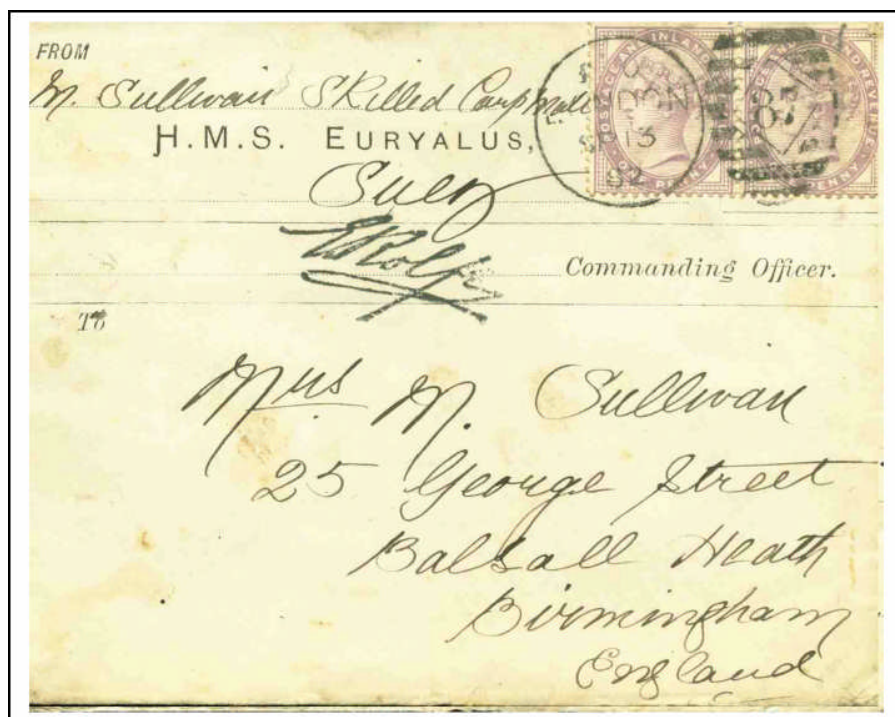 FROM
M. Sullivan Skilled Carp Mate
H.M.S. EURYALUS,
Suez
E Rolfe
Commanding Officer.
To
Mrs M. Sullivan
25 George Street
Balsall Heath
Birmingham
England
LONDON
13
82
POSTAGE AND INLAND REVENUE
ONE PENNY
87